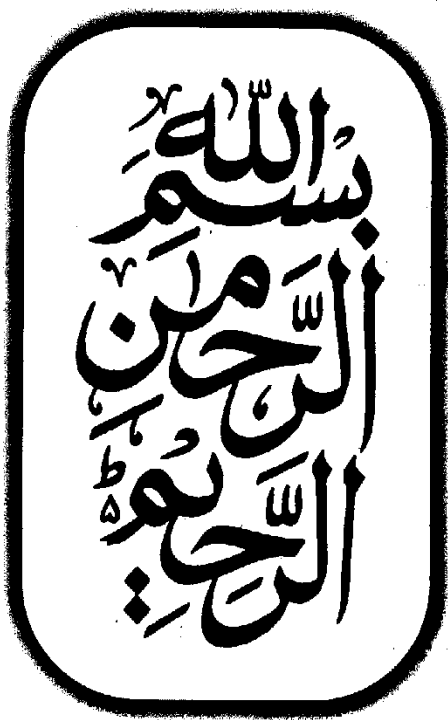 بِسْمِ اللهِ
الرَّحْمٰنِ
الرَّحِيْمِ ط